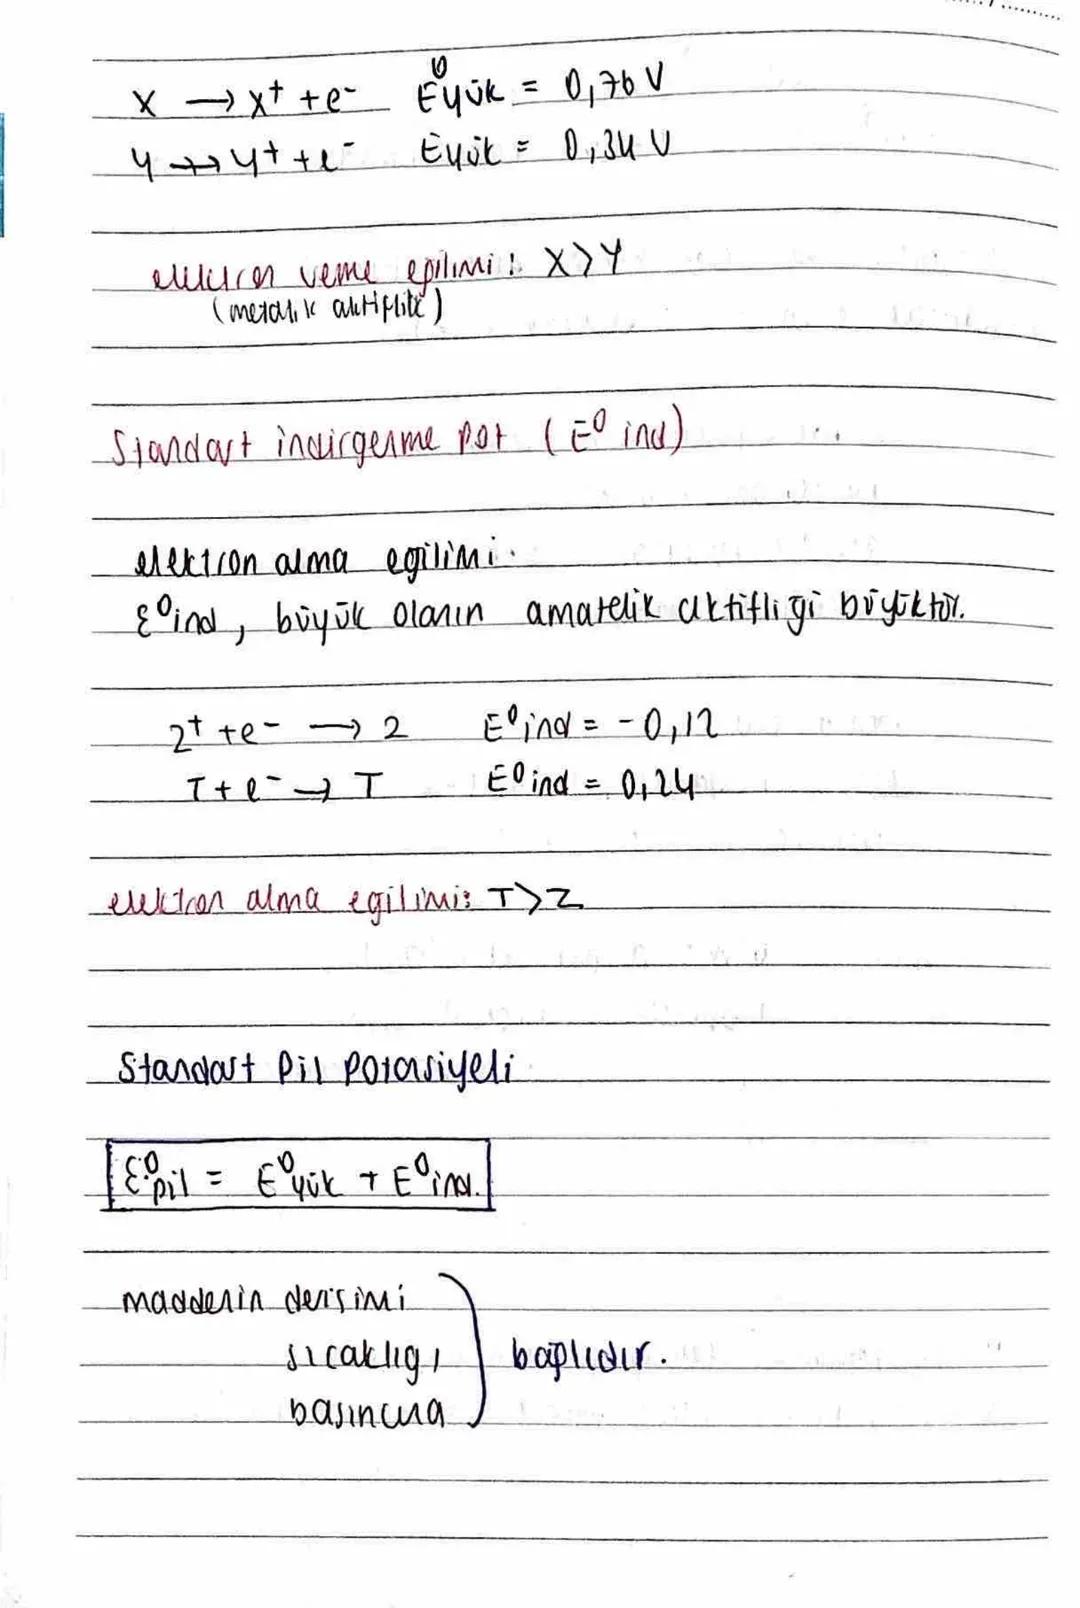 X → X⁺ + e⁻ E⁰yük = 0,76 V
Y → Y⁺ + e⁻ Eyük = 0,34 V
elektron verme eğilimi: X>Y
(metalik aktiflik)
Standart indirgenme pot (E⁰ ind)
elektron alma eğilimi.
E⁰ind, büyük olanın ametalik aktifliği büyüktür.
Z⁺ + e⁻ → Z E⁰ind = -0,12
T + e⁻ → T E⁰ind = 0,24
elektron alma eğilimi: T>Z
Standart Pil Potansiyeli
E⁰pil = E⁰yük + E⁰ind.
maddenin derişimi
sıcaklığı
basıncına
bağlıdır.